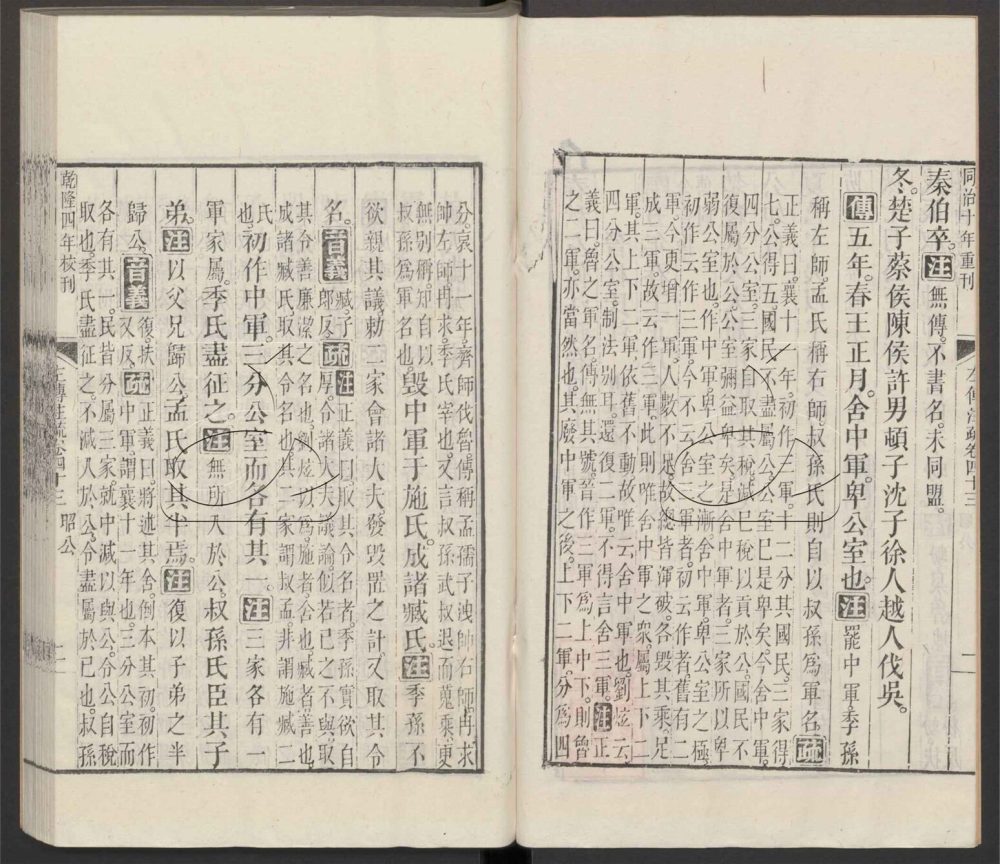 同治十年重刊
左傳注疏卷四十三
秦伯卒。注無傳。不書名。未同盟。
冬。楚子蔡侯陳侯許男頓子沈子徐人越人伐吳。
傳五年。春王正月。舍中軍。卑公室也。注罷中軍。季孫
稱左師。孟氏稱右師。叔孫氏則自以叔孫爲軍名。疏
正義曰。襄十一年。初作三軍。十二分其國民。三家得
七。公得五。國民不盡屬公。公室已是卑矣。今舍中軍。
四分公室。三家自取其稅。減已稅以貢於公。國民不
復屬於公。公室彌益卑矣。是舍中軍者。三家所以卑
弱公室也。作中軍。卑公室之漸。舍中軍。卑公室之極。
初作云作三軍。今不云舍三軍者。初云作者。舊有二
軍。今更增一軍。人數不足。故總皆渾破。各毀其乘。足
成三軍。故云作三軍。此則唯舍中軍之衆。屬上下二
軍。其上下二軍。依舊不動。故唯云舍中軍也。劉炫云。
四分公室。制法别耳。還復二軍。不得言舍三軍。注正
義曰。魯之三軍名。傳無其號。晉作三軍。爲上中下。則魯
之二軍。亦當然也。其廢中軍之後。上下二軍。分爲四
分。哀十一年。齊師伐魯。傳稱孟孺子洩帥右師。冉求
帥左師。冉求季氏宰也。又言叔孫武叔退而蒐乘。更
無别稱。知自以
叔孫爲軍名也。毀中軍于施氏。成諸臧氏。注季孫不
欲親其議。勅二家會諸大夫。發毀置之計。又取其令
名。音義臧。子郎反。疏注正義曰。取其令名者。季孫實欲自
厚。令諸大夫議論。似若已之不與。取
其令善廉潔之名也。劉炫以爲。施者舍也。臧者善也。
成諸臧氏。取其令名也。其二家謂叔孟。非謂施臧二
氏
也。初作中軍。三分公室而各有其一。注三家各有一
軍家屬。季氏盡征之。注無所入於公。叔孫氏臣其子
弟。注以父兄歸公。孟氏取其半焉。注復以子弟之半
歸公。音義復。扶又反。疏正義曰。將述其舍。倒本其初。初作
中軍。謂襄十一年也。三分公室而
各有其一。民皆分屬三家。就中減以與公。今公自稅
取也。季氏盡征之。不減入於公。令盡屬於已也。叔孫
乾隆四年校刊
左傳注疏卷四十三 昭公